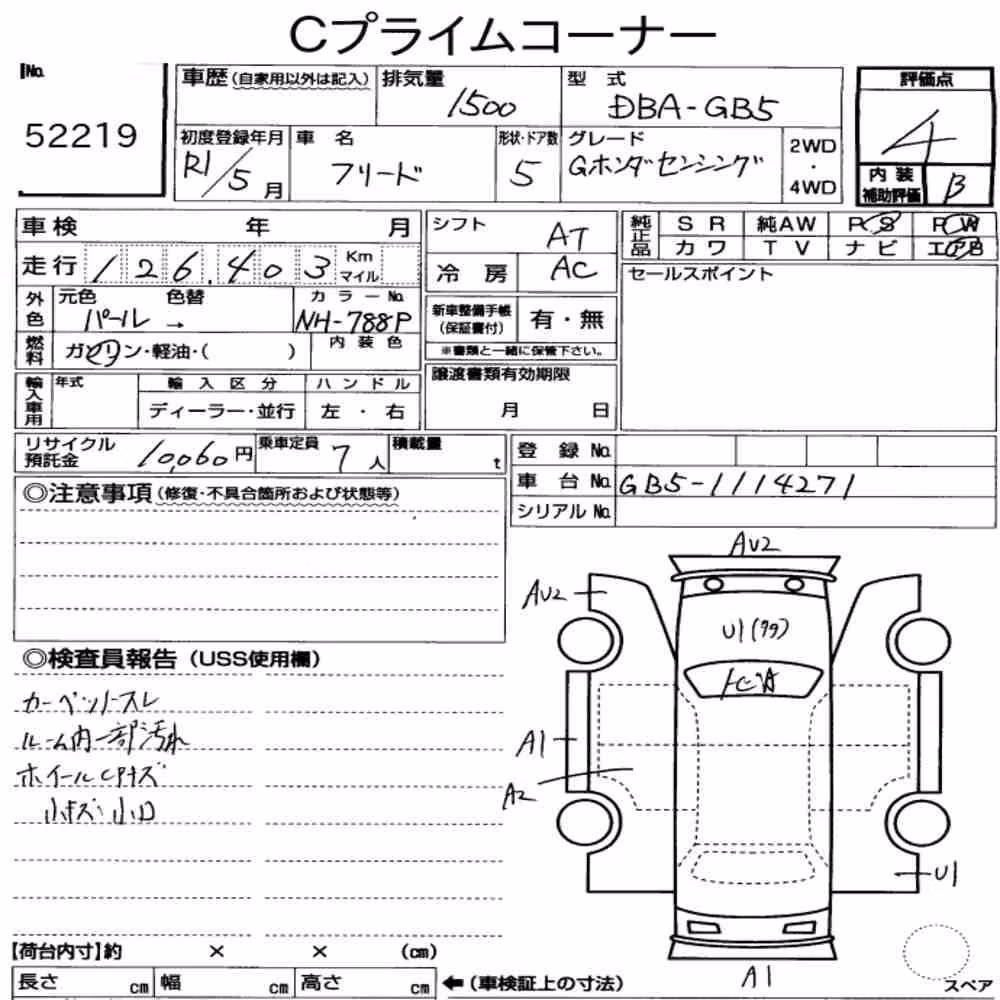 Cプライムコーナー
No.
52219
車歴(自家用以外は記入)
排気量
1500
型 式
DBA-GB5
評価点
4
初度登録年月
R1/5月
車 名
フリード
形状・ドア数
5
グレード
Gホンダセンシング
2WD
・
4WD
内 装
補助評価
B
車検 年 月
シフト
AT
純正品
S R
純AW
P S
P W
カワ
T V
ナビ
エアB
走行 126,403 Km マイル
冷 房
AC
セールスポイント
外色
元色 色替
パール →
カラーNo.
NH-788P
新車整備手帳
(保証書付)
有・無
燃料
ガソリン・軽油・( )
内 装 色
※書類と一緒に保管下さい。
輸入車用
年式
輸 入 区 分
ハ ン ド ル
ディーラー・並行
左 ・ 右
譲渡書類有効期限
月 日
リサイクル
預託金
10,060円
乗車定員
7人
積載量
t
登 録 No.
車 台 No.
GB5-1114271
シリアル No.
◎注意事項(修復・不具合箇所および状態等)
◎検査員報告(USS使用欄)
カーペットスレ
ルーム内一部汚れ
ホイールCPキズ
小キズ小凹
AU2
AU2
U1(タタ)
A1
A2
U1
A1
【荷台内寸】約 × × (cm)
長さ cm
幅 cm
高さ cm
←(車検証上の寸法)
スペア